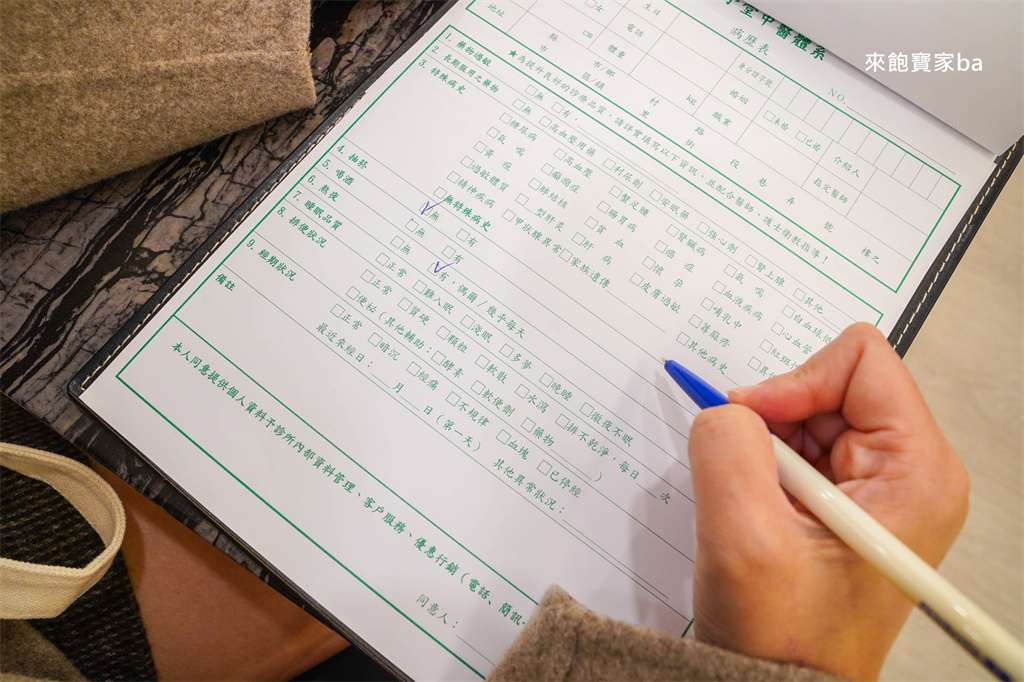 來飽寶家ba
堂中醫體系
病歷表
NO.
女 生日 身分證字號
cm 電話 婚姻 □未婚 □已婚 介紹人
體重 kg 職業 指定醫師
地址 縣市 市/鄉 區/鎮 村里 路街 段 巷 弄 號 樓之
★為提升良好的診療品質,請詳實填寫以下資訊,並配合醫師、護士衛教指導!
1. 藥物過敏 □無 □有,
2. 長期服用之藥物 □無 □高血壓用藥 □利尿劑 □安眠藥 □強心劑 □腎上腺 □其他
3. 特殊病史 □糖尿病 □高血壓 □蟹足腫 □腎臟病 □氣喘 □白血球低
□氣喘 □癲癇症 □腸胃病 □癌症 □血液疾病 □心血管
□黃疸 □肺結核 □貧血 □懷孕 □哺乳中 □紅斑
□過敏體質 □ 型肝炎 □肝病 □皮膚過敏 □蕁麻疹
□精神疾病 □甲狀腺異常 □家族遺傳 □其他病史
□無特殊病史
4. 抽菸 ☑無 □有
5. 喝酒 □無 □有
6. 熬夜 □無 ☑有,偶爾/幾乎每天
7. 睡眠品質 □正常 □難入眠 □淺眠 □多夢 □晚睡 □徹夜不眠
8. 排便狀況 □正常 □質硬 □顆粒 □軟散 □水瀉 □排不乾淨,每日 次
□便秘(其他輔助:□酵素 □軟便劑 □藥物 )
9. 經期狀況 □正常 □暗沉 □經痛 □不規律 □血塊 □已停經
最近來經日: 月 日(第一天) 其他異常狀況:
備註
本人同意提供個人資料予診所內部資料管理、客戶服務、優惠行銷(電話、簡訊
同意人: